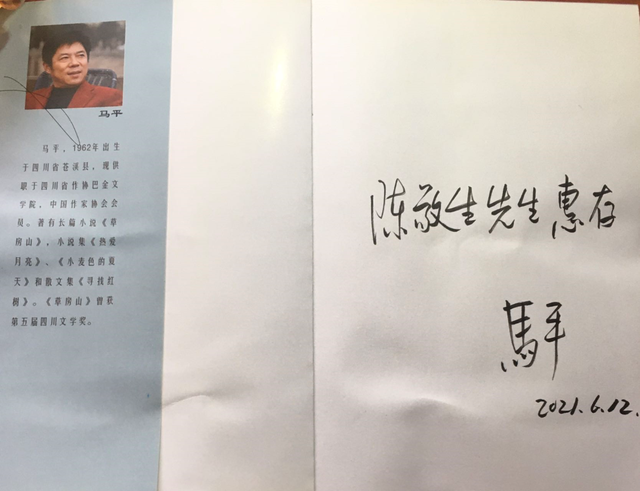 马平
马平，1962年出生
于四川省苍溪县，现供
职于四川省作协巴金文
学院，中国作家协会会
员。著有长篇小说《草
房山》，小说集《热爱
月亮》、《小麦色的夏
天》和散文集《寻找红
树》。《草房山》曾获
第五届四川文学奖。
陈敬生先生惠存
馬平
2021.6.12.